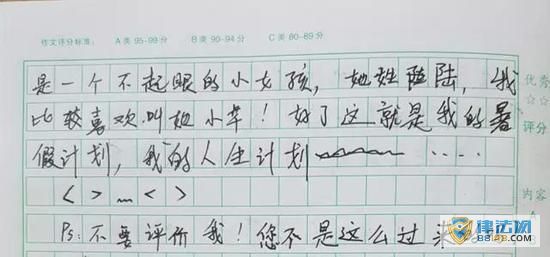 作文评分标准： A类 95-99分 B类 90-94分 C类 80-89分
是一个不起眼的小女孩，她姓陆，我
优秀
比较喜欢叫她小草！好了这就是我的暑
评分
假计划，我的人生计划 ····
< > … < >
内容
Ps：不要评价我！您不是这么过来
律法网
88148.com